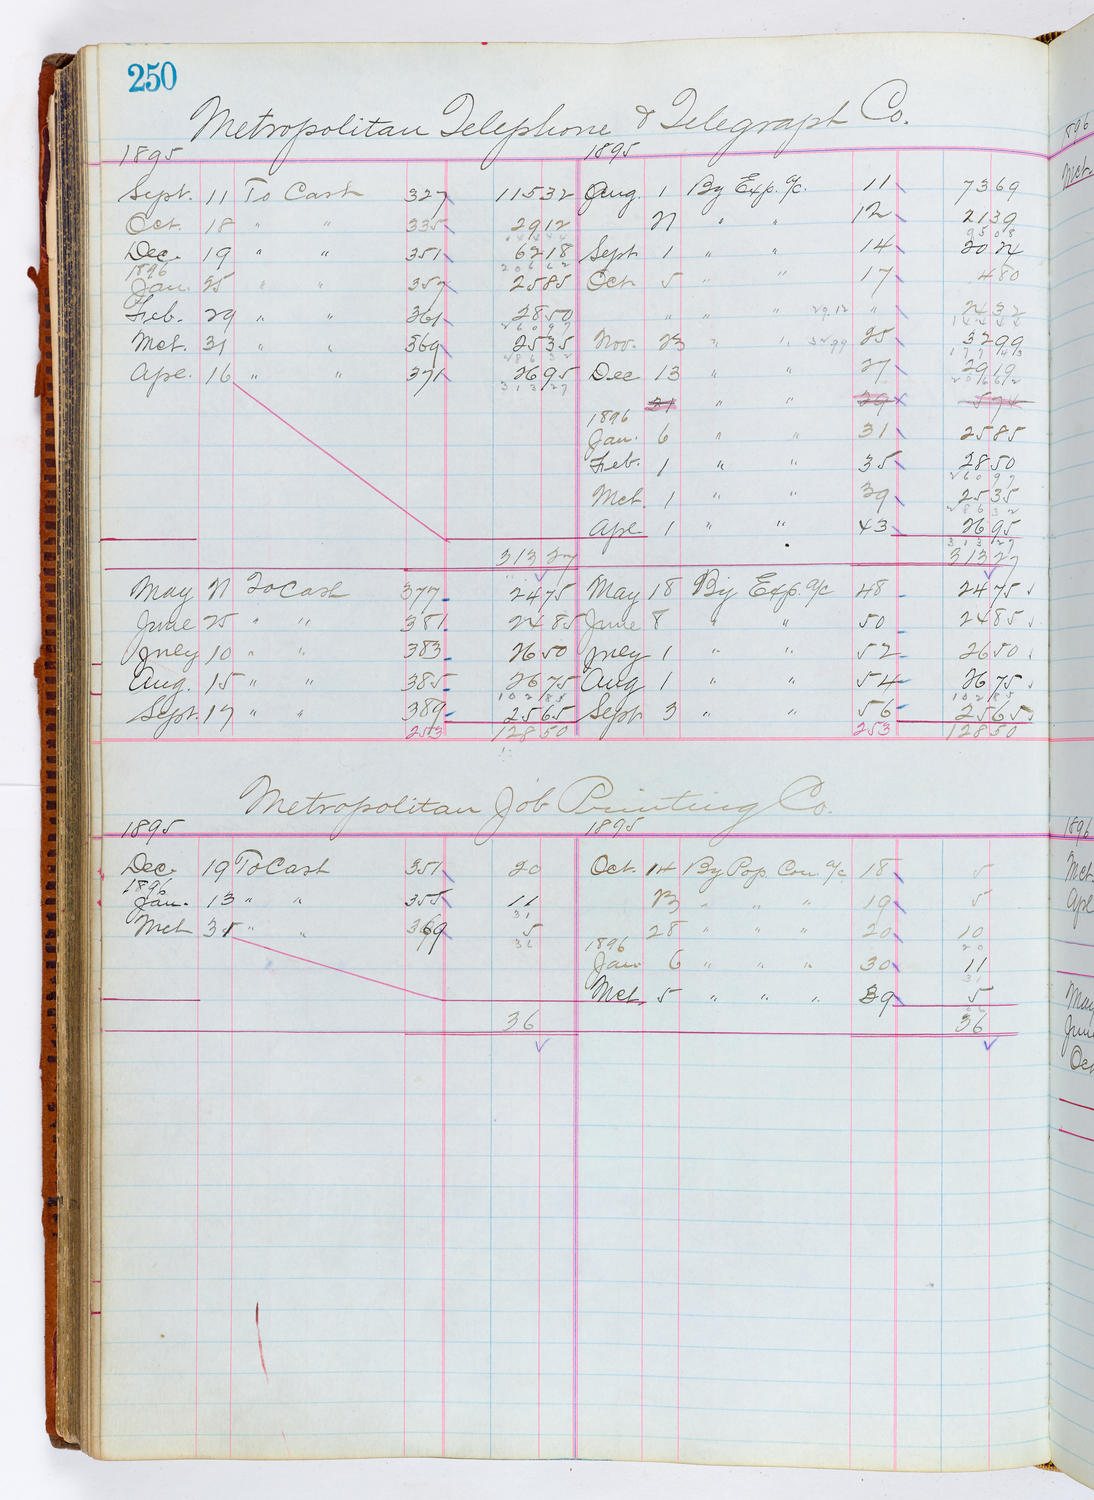 250
Metropolitan Telephone & Telegraph Co.
1895 1895
Sept. 11 To Cash 327 115 32 Aug. 1 By Exp. a/c. 11 73 69
Oct. 18 " " 335 29 12 21 " " 12 21 39
144 44 95 08
Dec. 19 " " 351 62 18 Sept 1 " " 14 20 24
1896 206 62
Jan. 25 " " 357 25 85 Oct 5 " " 17 4 80
Feb. 29 " " 361 28 50 " " " 29 12 " 24 32
260 97 144 44
Mct. 31 " " 369 25 35 Nov. 23 " " 32 99 25 32 99
286 32 177 43
Apl. 16 " " 371 26 95 Dec 13 " " 27 29 19
313 27 206 62
31 " " 29 5 74
1896
Jan. 6 " " 31 25 85
Feb. 1 " " 35 28 50
260 97
Mct. 1 " " 39 25 35
286 32
Apl 1 " " 43 26 95
313 27
313 27 313 27
May 21 To Cash 377 24 75 May 18 By Exp. a/c 48 24 75
June 25 " " 381 24 85 June 8 " " 50 24 85
July 10 " " 383 26 50 July 1 " " 52 26 50
Aug. 15 " " 385 26 75 Aug 1 " " 54 26 75
102 85 102 85
Sept. 17 " " 389 25 65 Sept 3 " " 56 25 65
253 128 50 253 128 50
Metropolitan Job Printing Co.
1895 1895
Dec. 19 To Cash 351 20 Oct. 14 By Pop. Con a/c 18 5
1896
Jan. 13 " " 355 11 23 " " " 19 5
31
Mct 31 " " 369 5 28 " " " 20 10
36 1896 20
Jan 6 " " " 30 11
31
Mct. 5 " " " 39 5
36 36
1896
Mct.
1896
Mct
Apl
May
June
Oct